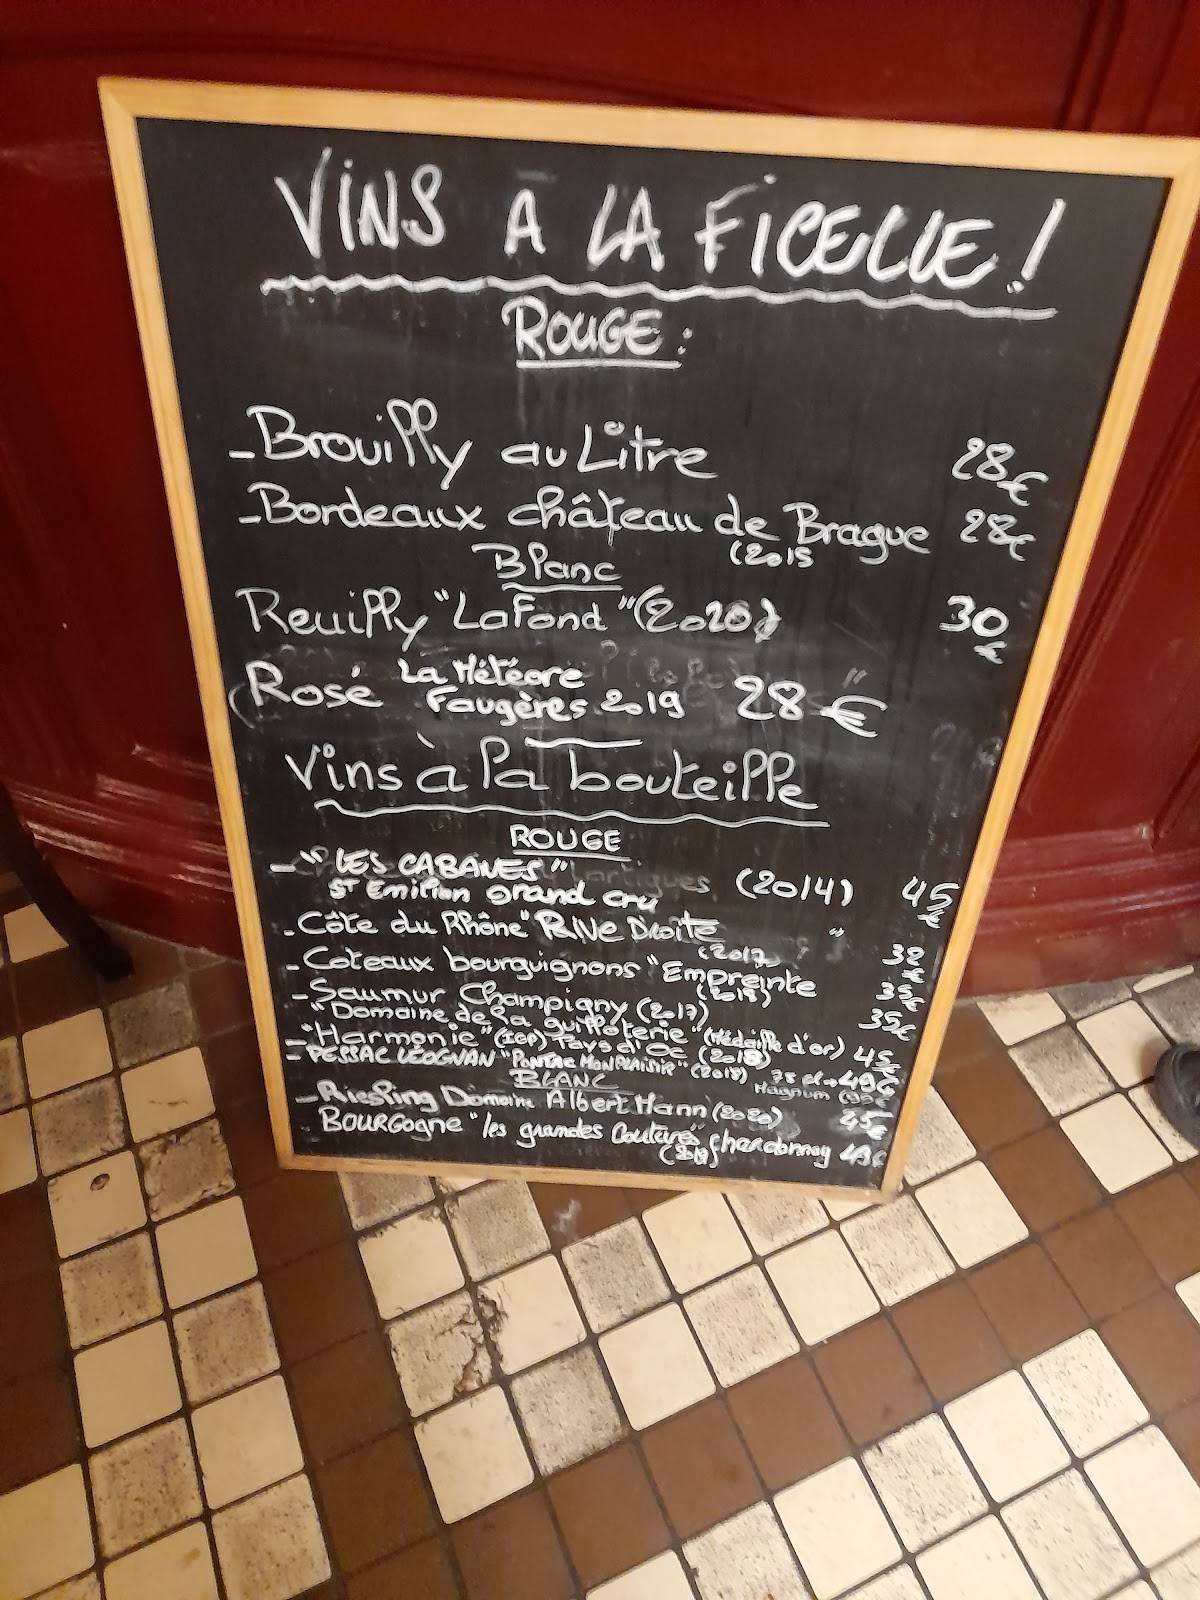 VINS A LA FICELLE !
ROUGE :
- Brouilly au Litre 28€
- Bordeaux château de Brague 28€
(2015
Blanc
Reuilly "LaFond" (2020) 30€
Rosé La Météore 28€
Faugères 2019
Vins à la bouteille
ROUGE
- "LES CABANES" (2014) 45€
St Emilion Grand cru
- Côte du Rhône "RIVE Droite"
(2017)
- Coteaux bourguignons "Empreinte 35€
- Saumur Champigny (2017) 35€
"Domaine de la guilloterie" (Médaille d'or)
- "Harmonie" (IGP) Pays d'Oc (2018) 45€
- PESSAC LÉOGNAN "PONTAC MONPLAISIR" (2018) 75 cl → 49€
Magnum
BLANC
- Riesling Domaine Albert Mann (2020) 45€
BOURGogne "les grandes Coutures" chardonnay